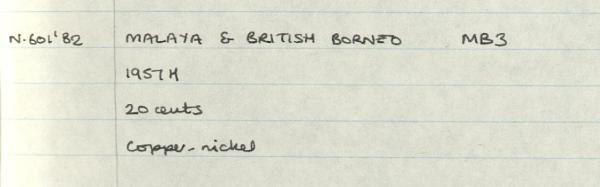 N.601'82 MALAYA & BRITISH BORNEO MB3
1957H
20 cents
Copper-nickel